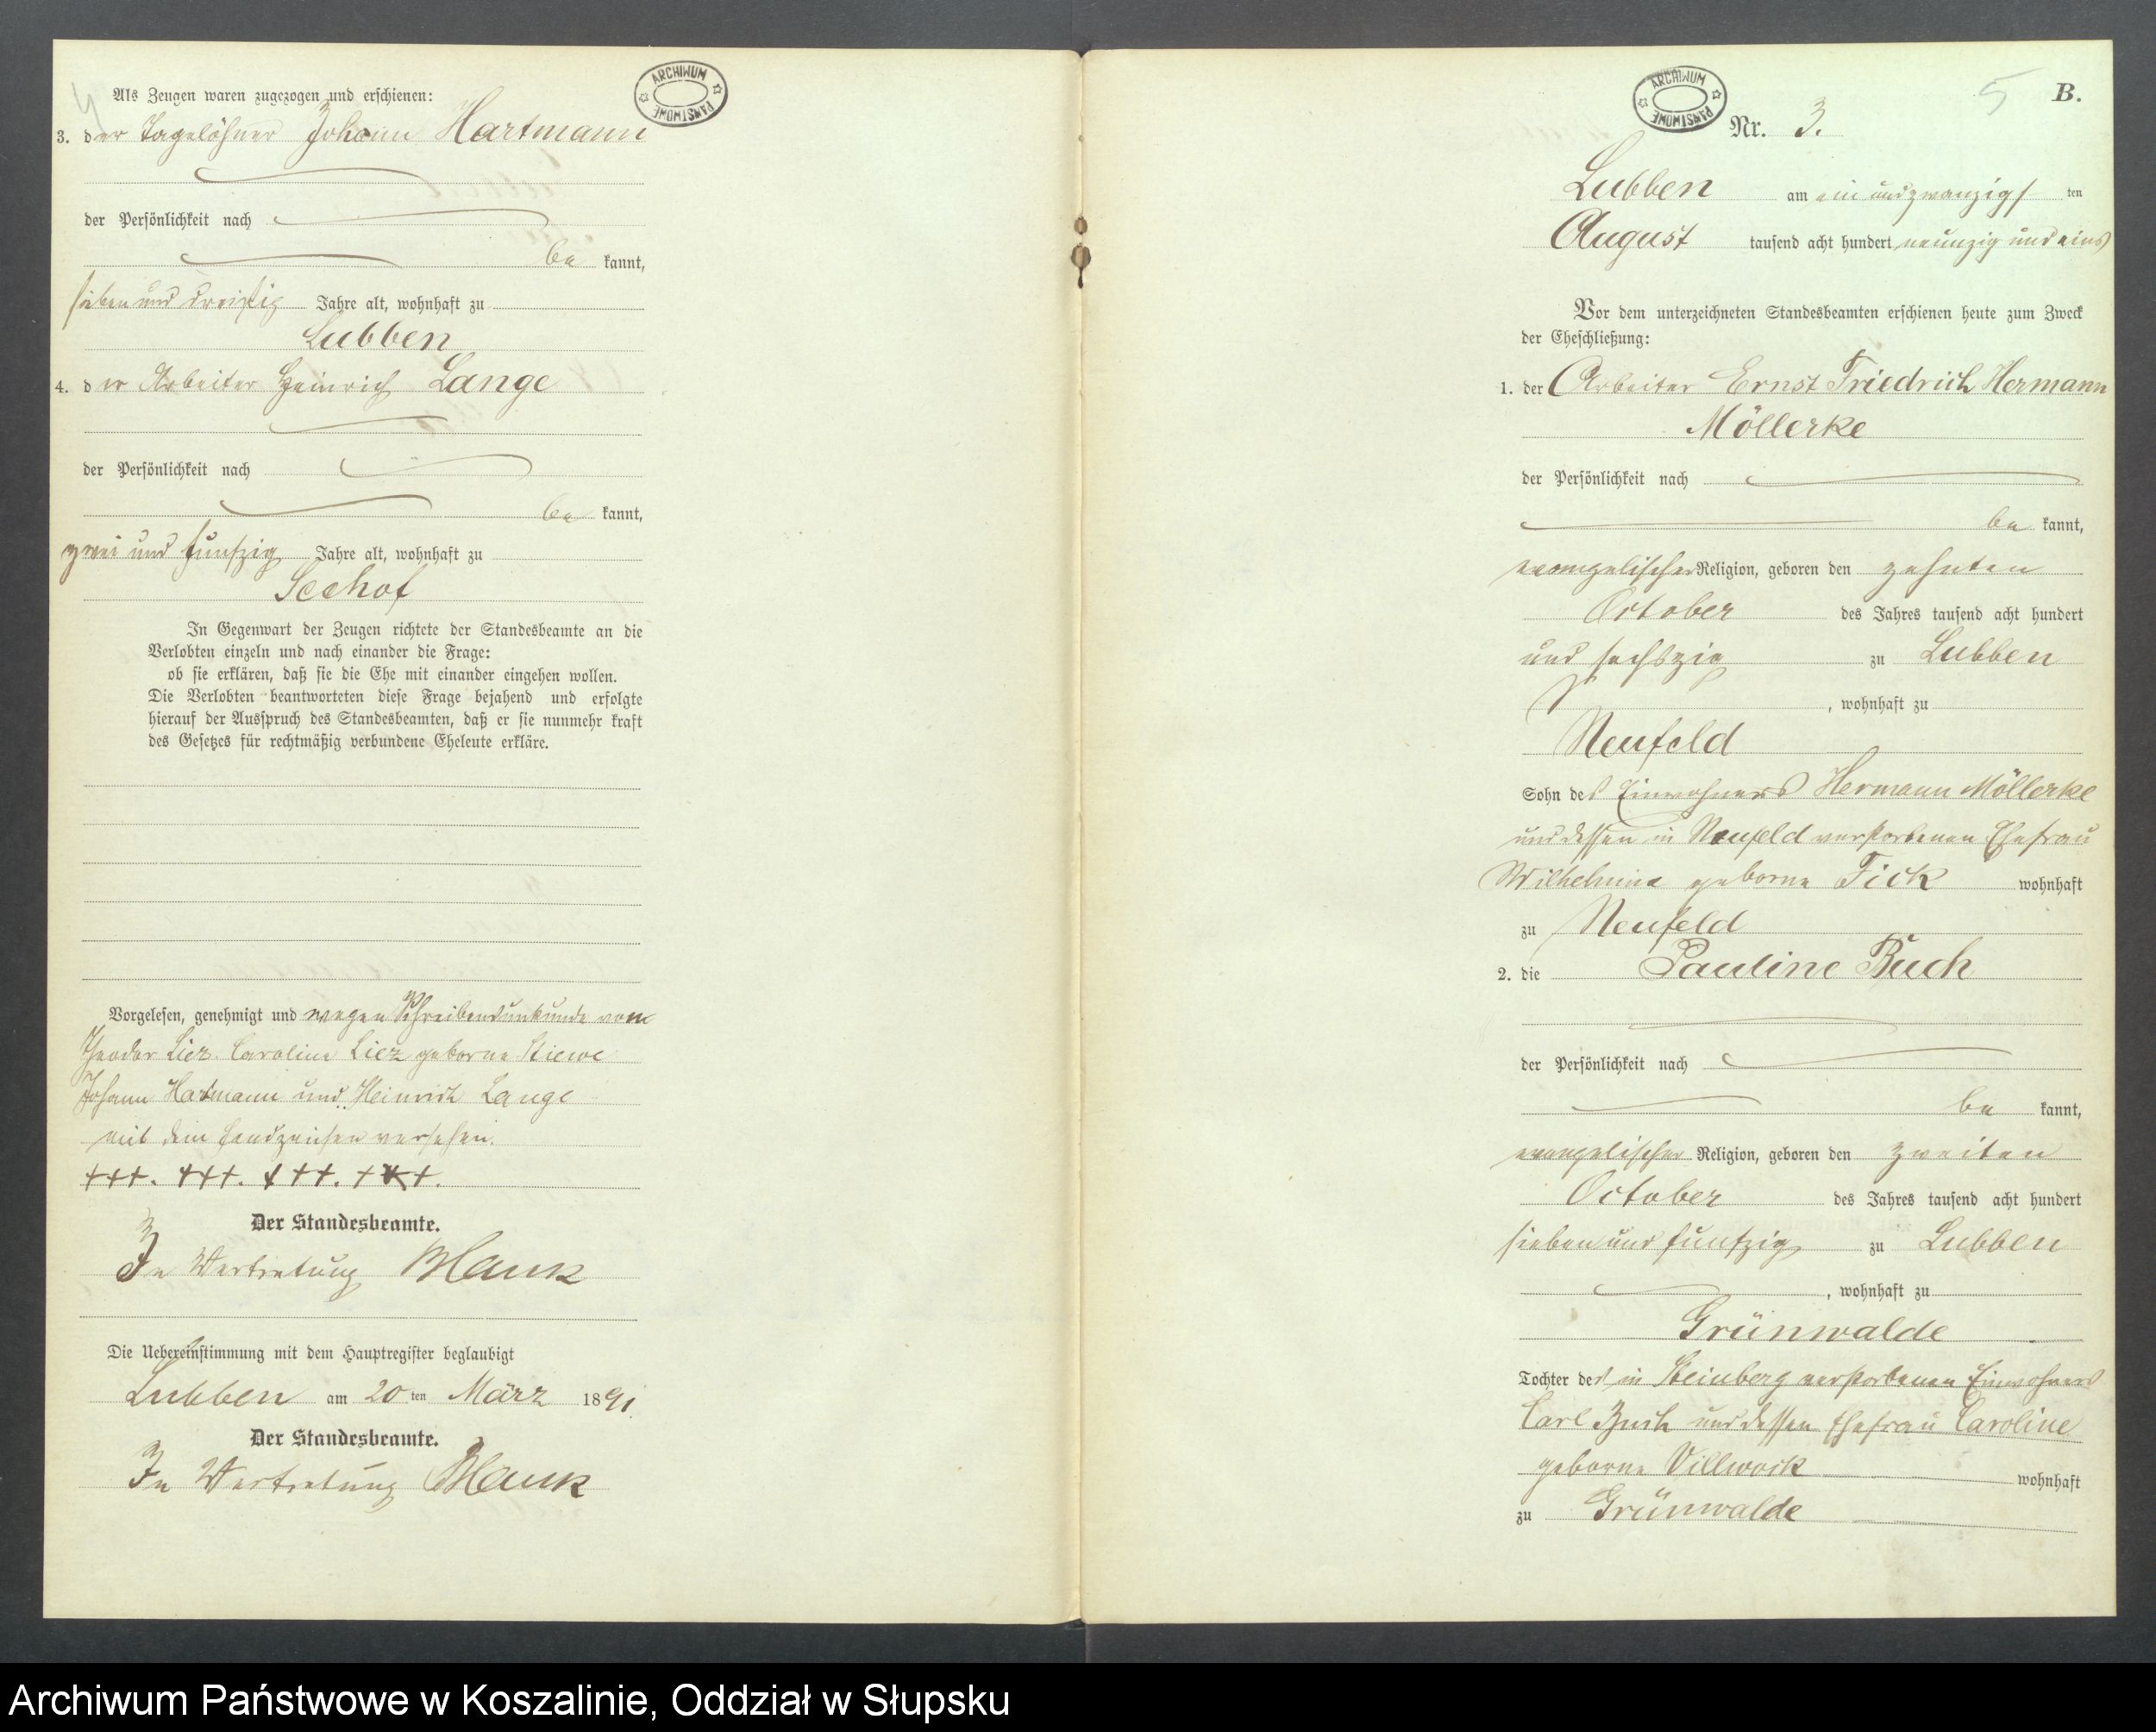 Als Zeugen waren zugezogen und erschienen:
ARCHIWUM PAŃSTWOWE
3. der Tagelöhner Johann Hartmann
der Persönlichkeit nach
be kannt,
sieben und dreißig Jahre alt, wohnhaft zu
Lubben
4. der Arbeiter Heinrich Lange
der Persönlichkeit nach
be kannt,
zwei und funfzig Jahre alt, wohnhaft zu
Seehof
In Gegenwart der Zeugen richtete der Standesbeamte an die
Verlobten einzeln und nach einander die Frage:
ob sie erklären, daß sie die Ehe mit einander eingehen wollen.
Die Verlobten beantworteten diese Frage bejahend und erfolgte
hierauf der Ausspruch des Standesbeamten, daß er sie nunmehr kraft
des Gesetzes für rechtmäßig verbundene Eheleute erkläre.
Vorgelesen, genehmigt und wegen Schreibensunkunde vom
Theodor Liez Caroline Liez geborne Stiewe
Johann Hartmann und Heinrich Lange
mit dem Handzeichen versehen.
+++. +++. +++. +++.
Der Standesbeamte.
In Vertretung Mank
Die Uebereinstimmung mit dem Hauptregister beglaubigt
Lubben am 20 ten März 1891.
Der Standesbeamte.
In Vertretung Mank
ARCHIWUM PAŃSTWOWE
5 B.
Nr. 3.
Lubben am ein und zwanzigs ten
August tausend acht hundert neunzig und eins
Vor dem unterzeichneten Standesbeamten erschienen heute zum Zweck
der Eheschließung:
1. der Arbeiter Ernst Friedrich Hermann
Möllerke
der Persönlichkeit nach
be kannt,
evangelischer Religion, geboren den zehnten
October des Jahres tausend acht hundert
und sechszig zu Lubben
, wohnhaft zu
Neufeld
Sohn des Einwohners Hermann Möllerke
und dessen in Neufeld verstorbenen Ehefrau
Wilhelmine geborne Fick wohnhaft
zu Neufeld
2. die Pauline Buch
der Persönlichkeit nach
be kannt,
evangelischer Religion, geboren den zweiten
October des Jahres tausend acht hundert
sieben und funfzig zu Lubben
, wohnhaft zu
Grünwalde
Tochter des in Steinberg verstorbenen Einwohners
Carl Buch und dessen Ehefrau Caroline
geborne Villwock wohnhaft
zu Grünwalde
Archiwum Państwowe w Koszalinie, Oddział w Słupsku